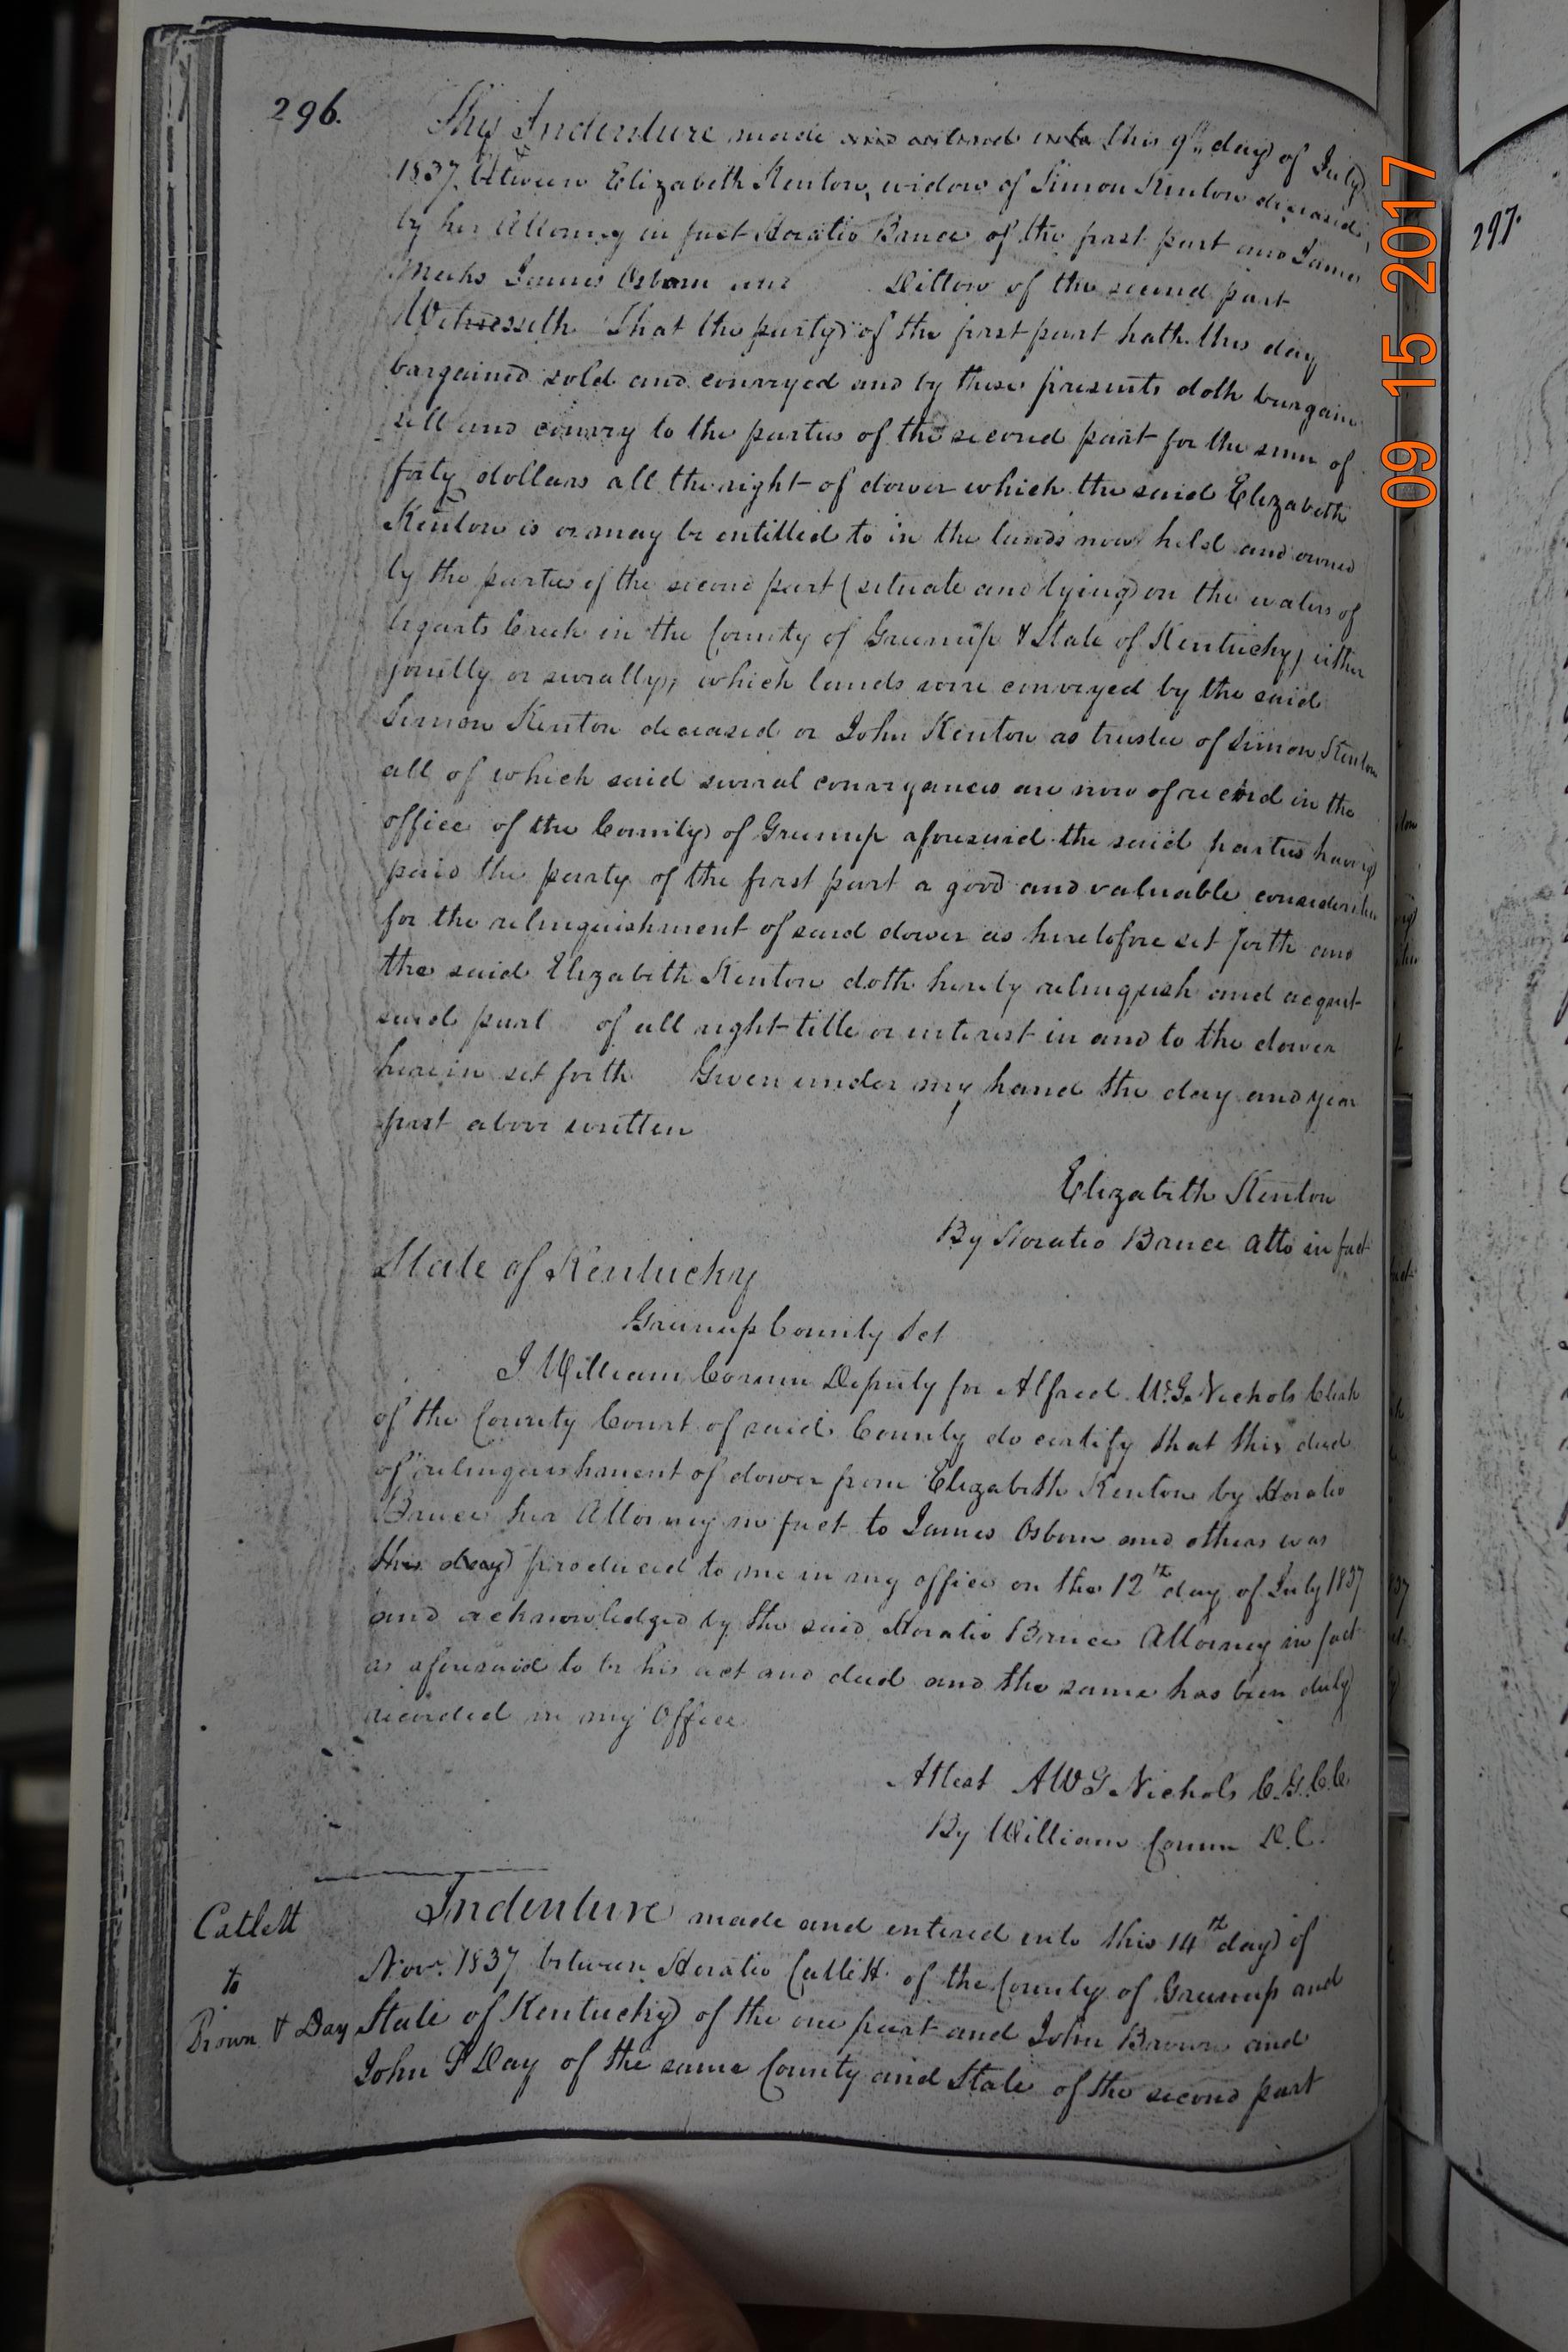 296.
This Indenture made and entered into this 9th day of July
1837 between Elizabeth Kenton, widow of Simon Kenton deceased,
by her Attorney in fact Horatio Bruce of the first part and James
Meeks James Osborn and Dillow of the second part
Witnesseth That the party of the first part hath this day
bargained sold and conveyed and by these presents doth bargain
sell and convey to the parties of the second part for the sum of
forty dollars all the right of dower which the said Elizabeth
Kenton is or may be entitled to in the lands now held and owned
by the parties of the second part (situate and lying on the waters of
Tygarts Creek in the County of Greenup & State of Kentucky) either
jointly or severally, which lands were conveyed by the said
Simon Kenton deceased or John Kenton as trustee of Simon Kenton
all of which said several conveyances are now of record in the
office of the County of Greenup aforesaid the said parties having
paid the party of the first part a good and valuable consideration
for the relinquishment of said dower as heretofore set forth and
the said Elizabeth Kenton doth hereby relinquish and acquit
said part of all right title or interest in and to the dower
herein set forth Given under my hand the day and year
first above written
Elizabeth Kenton
By Horatio Bruce atto in fact
State of Kentucky
Greenup County Sct
I William Corum Deputy for Alfred W. G. Nichols Clerk
of the County Court of said County do certify that this deed
of relinquishment of dower from Elizabeth Kenton by Horatio
Bruce her Attorney in fact to James Osborn and others was
this day produced to me in my office on the 12th day of July 1837
and acknowledged by the said Horatio Bruce Attorney in fact
as aforesaid to be his act and deed and the same has been duly
recorded in my Office
Attest A W G Nichols C.G.C.C
By William Corum D.C.
Catlett
to
Brown & Day
Indenture made and entered into this 14th day of
Nov. 1837 between Horatio Catlett of the County of Greenup and
State of Kentucky of the one part and John Brown and
John P Day of the same County and State of the second part
297.
09 15 2017